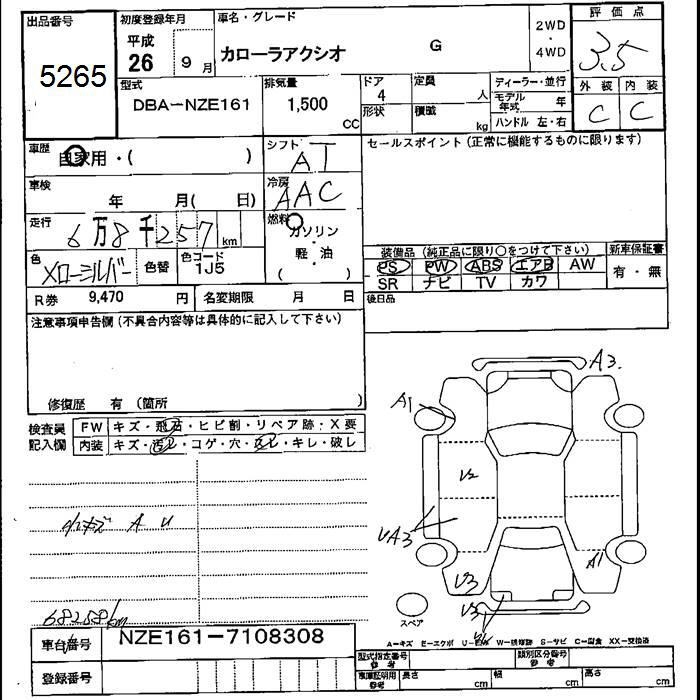 出品番号 初度登録年月 車名・グレード 2WD・4WD 評価点
5265 平成 26 9月 カローラアクシオ G 3.5
型式 排気量 ドア 定員 ディーラー・並行 外装 内装
DBA-NZE161 1,500 CC 4 人 モデル年式 年 C C
形状 積載 kg ハンドル 左・右
車歴 自家用・( ) シフト AT セールスポイント(正常に機能するものに限ります)
車検 年 月( 日) 冷房 AAC
走行 6万8千257km 燃料 ガソリン・軽・油 ( )
装備品(純正品に限り○をつけて下さい) 新車保証書
色 色替 色コード 1J5 PS PW ABS エアB AW 有・無
SR ナビ TV カワ
R券 9,470 円 名変期限 月 日 後日品
注意事項申告欄(不具合内容等は具体的に記入して下さい)
修復歴 有(箇所
検査員記入欄 FW キズ・飛石・ヒビ割・リペア跡・X要
内装 キズ・汚レ・コゲ・穴・スレ・キレ・破レ
小キズ A U
68258km
A3
A1
V2
UA3
A1
V3
V3
スペア
A-キズ E-エクボ W-補修跡 S-サビ C-腐食 XX-交換済
車台番号 NZE161-7108308
登録番号
型式指定番号 参考 類別区分番号 参考
車庫証明用 参考 長さ cm 幅 cm 高さ cm